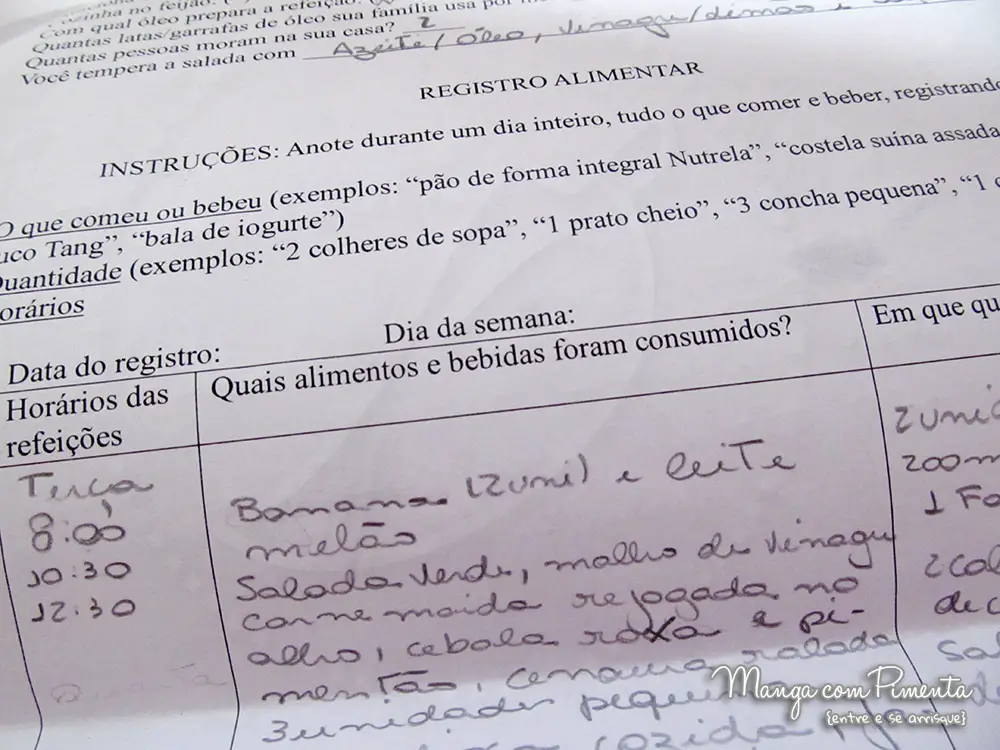 ozinha no feijão? (
Com qual óleo prepara a refeição? (
Quantas latas/garrafas de óleo sua família usa por
Quantas pessoas moram na sua casa? 2
Você tempera a salada com Azeite/óleo, vinagre/limão e
REGISTRO ALIMENTAR
INSTRUÇÕES: Anote durante um dia inteiro, tudo o que comer e beber, registrando
O que comeu ou bebeu (exemplos: “pão de forma integral Nutrela”, “costela suína assada
uco Tang”, “bala de iogurte”)
Quantidade (exemplos: “2 colheres de sopa”, “1 prato cheio”, “3 concha pequena”, “1
orários
Data do registro: Dia da semana:
Horários das refeições Quais alimentos e bebidas foram consumidos? Em que qu
Terça
8:00 Banana (2 uni) e leite 2 uni
10:30 melão 200m
12:30 Salada verde, molho de vinagre 1 Fa
carne moida refogada no 2 col
alho, cebola roxa e pi- de
mentão, cenoura ralada Sa
3 unidades
cozida
Manga com Pimenta
{entre e se arrisque}